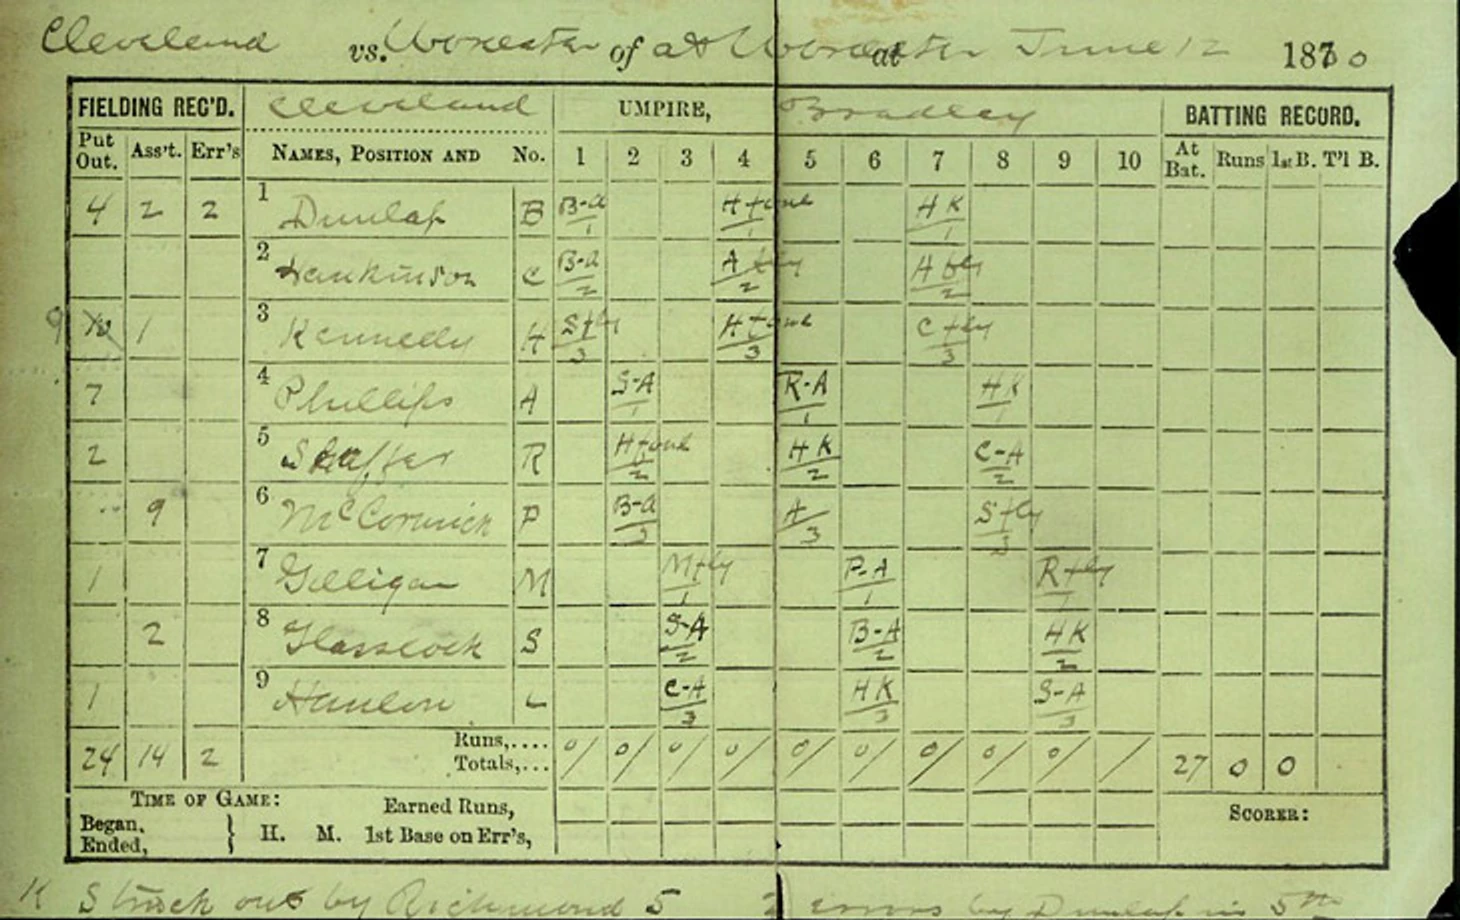 Cleveland vs. Worcester of at Worcester at June 12 1880
FIELDING REC'D. Cleveland UMPIRE, Bradley BATTING RECORD.
Put Out. Ass't. Err's NAMES, POSITION AND No. 1 2 3 4 5 6 7 8 9 10 At Bat. Runs 1st B. T'l B.
4 2 2 1 Dunlap B B-a/1 H foul/1 H K/1
2 Hankinson C B-a/2 A fly/2 H fly/2
9 1 3 Kennedy H S fly/3 H foul/3 C fly/3
7 4 Phillips A S-A/1 R-A/1 H K/1
2 5 Shaffer R H foul/2 H K/2 C-A/2
9 6 McCormick P B-a/3 A/3 S fly/3
1 7 Gilligan M M fly/1 P-A/1 R fly/1
2 8 Glasscock S S-A/2 B-A/2 H K/2
1 9 Hanlon L C-A/3 H K/3 S-A/3
24 14 2 Runs,.... Totals,... 0/ 0/ 0/ 0/ 0/ 0/ 0/ 0/ 0/ / 27 0 0
TIME OF GAME: Earned Runs, SCORER:
Began, Ended, } H. M. 1st Base on Err's,
K Struck out by Richmond 5 2 errors by Dunlap in 5th